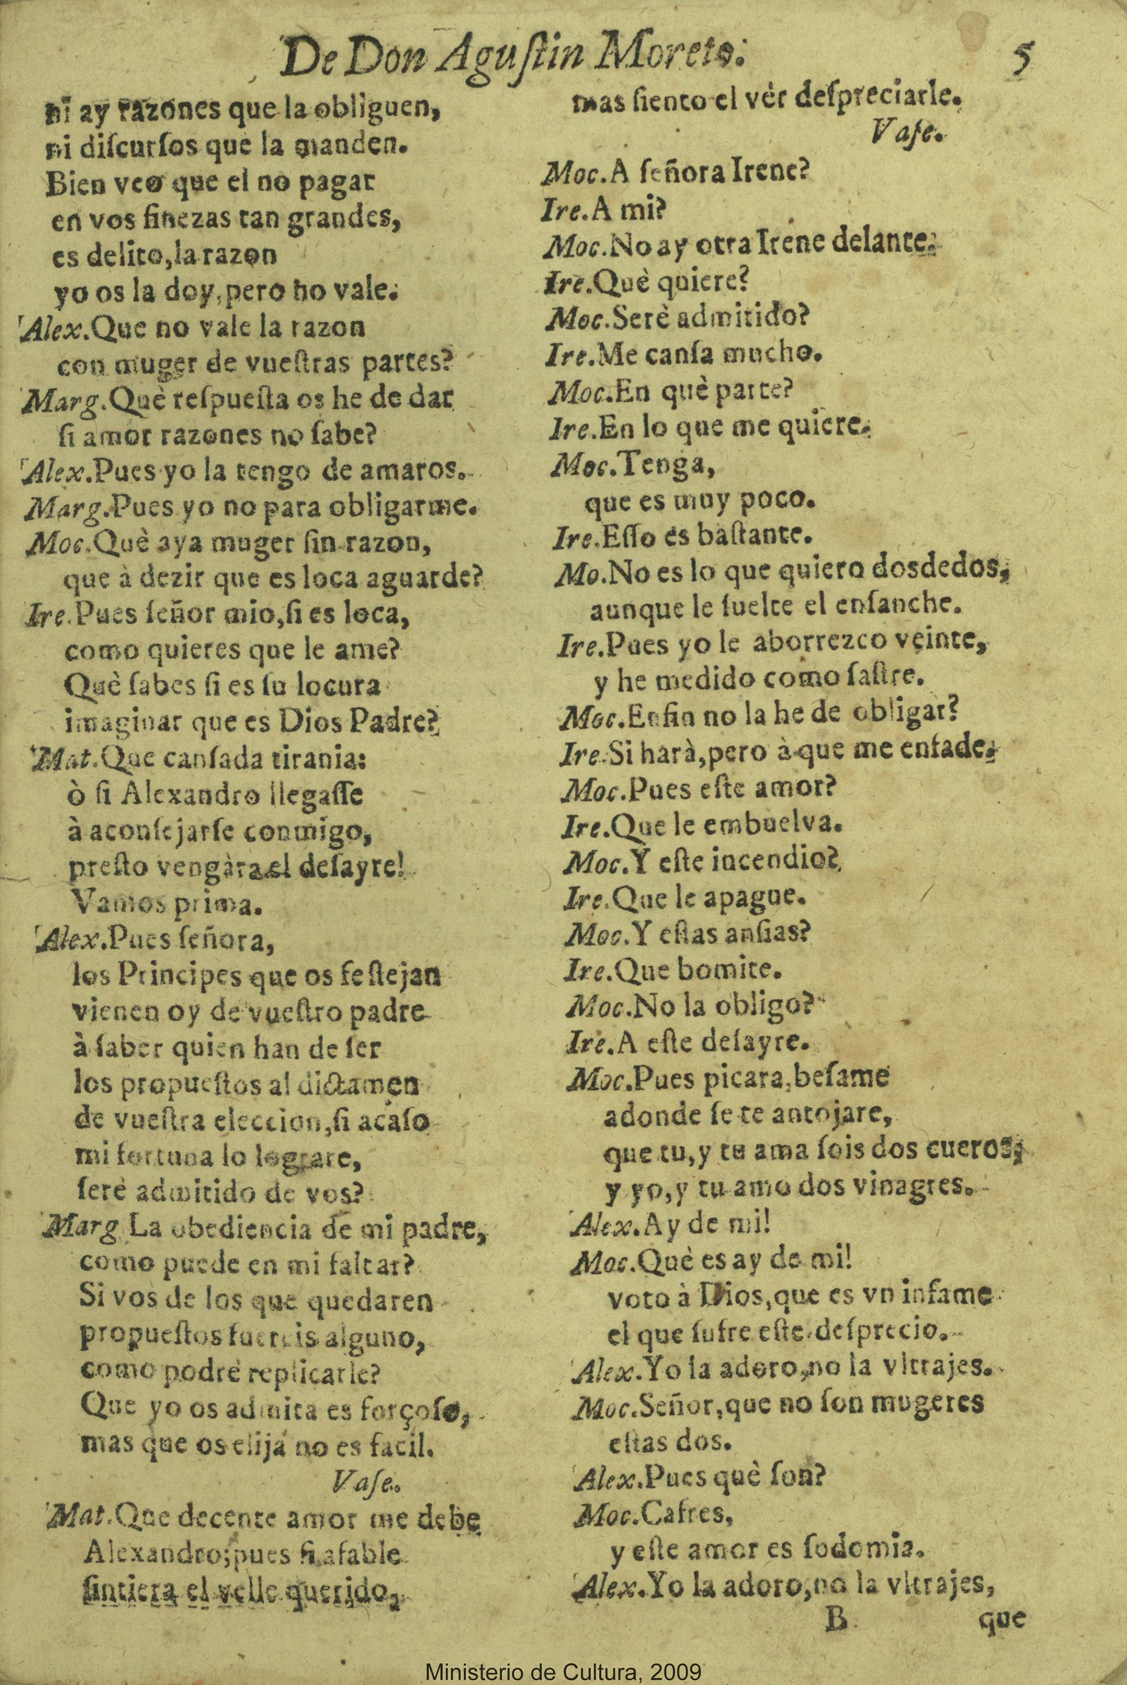 De Don Aguſtin Moreto.
5
ni ay razones que la obliguen,
ni diſcurſos que la manden.
Bien veo que el no pagar
en vos finezas tan grandes,
es delito,la razon
yo os la doy,pero no vale.
Alex.Que no vale la razon
con muger de vueſtras partes?
Marg.Què reſpueſta os he de dar
ſi amor razones no ſabe?
Alex.Pues yo la tengo de amaros.
Marg.Pues yo no para obligarme.
Moc.Què aya muger ſin razon,
que à dezir que es loca aguarde?
Ire.Pues ſeñor mio,ſi es loca,
como quieres que le ame?
Què ſabes ſi es ſu locura
imaginar que es Dios Padre?
Mat.Que canſada tirania:
ò ſi Alexandro llegaſſe
à aconſejarſe conmigo,
preſto vengàra el deſayre!
Vamos prima.
Alex.Pues ſeñora,
los Principes que os feſtejan
vienen oy de vueſtro padre
à ſaber quien han de ſer
los propueſtos al dictamen
de vueſtra eleccion,ſi acaſo
mi fortuna lo lograre,
ſerè admitido de vos?
Marg.La obediencia de mi padre,
como puede en mi faltar?
Si vos de los que quedaren
propueſtos fuereis alguno,
como podrè replicarle?
Que yo os admita es forçoſo,
mas que os elija no es facil.
Vaſe.
Mat.Que decente amor me debe
Alexandro;pues ſi afable
ſintiera el velle querido,
mas ſiento el vèr deſpreciarle.
Vaſe.
Moc.A ſeñora Irene?
Ire.A mi?
Moc.No ay otra Irene delante.
Ire.Què quiere?
Moc.Serè admitido?
Ire.Me canſa mucho.
Moc.En què parte?
Ire.En lo que me quiere.
Moc.Tenga,
que es muy poco.
Ire.Eſſo es baſtante.
Mo.No es lo que quiero dos dedos,
aunque le ſuelte el enſanche.
Ire.Pues yo le aborrezco veinte,
y he medido como ſaſtre.
Moc.Enfin no la he de obligar?
Ire.Si harà,pero à que me enfade.
Moc.Pues eſte amor?
Ire.Que le embuelva.
Moc.Y eſte incendio?
Ire.Que le apague.
Moc.Y eſtas anſias?
Ire.Que bomite.
Moc.No la obligo?
Ire.A eſte deſayre.
Moc.Pues picara,beſame
adonde ſe te antojare,
que tu,y tu ama ſois dos cueros,
y yo,y tu amo dos vinagres.
Alex.Ay de mi!
Moc.Què es ay de mi!
voto à Dios,que es vn infame
el que ſufre eſte deſprecio.
Alex.Yo la adoro,no la vltrajes.
Moc.Señor,que no ſon mugeres
eſtas dos.
Alex.Pues què ſon?
Moc.Cafres,
y eſte amor es ſodomia.
Alex.Yo la adoro,no la vltrajes,
B
que
Ministerio de Cultura, 2009